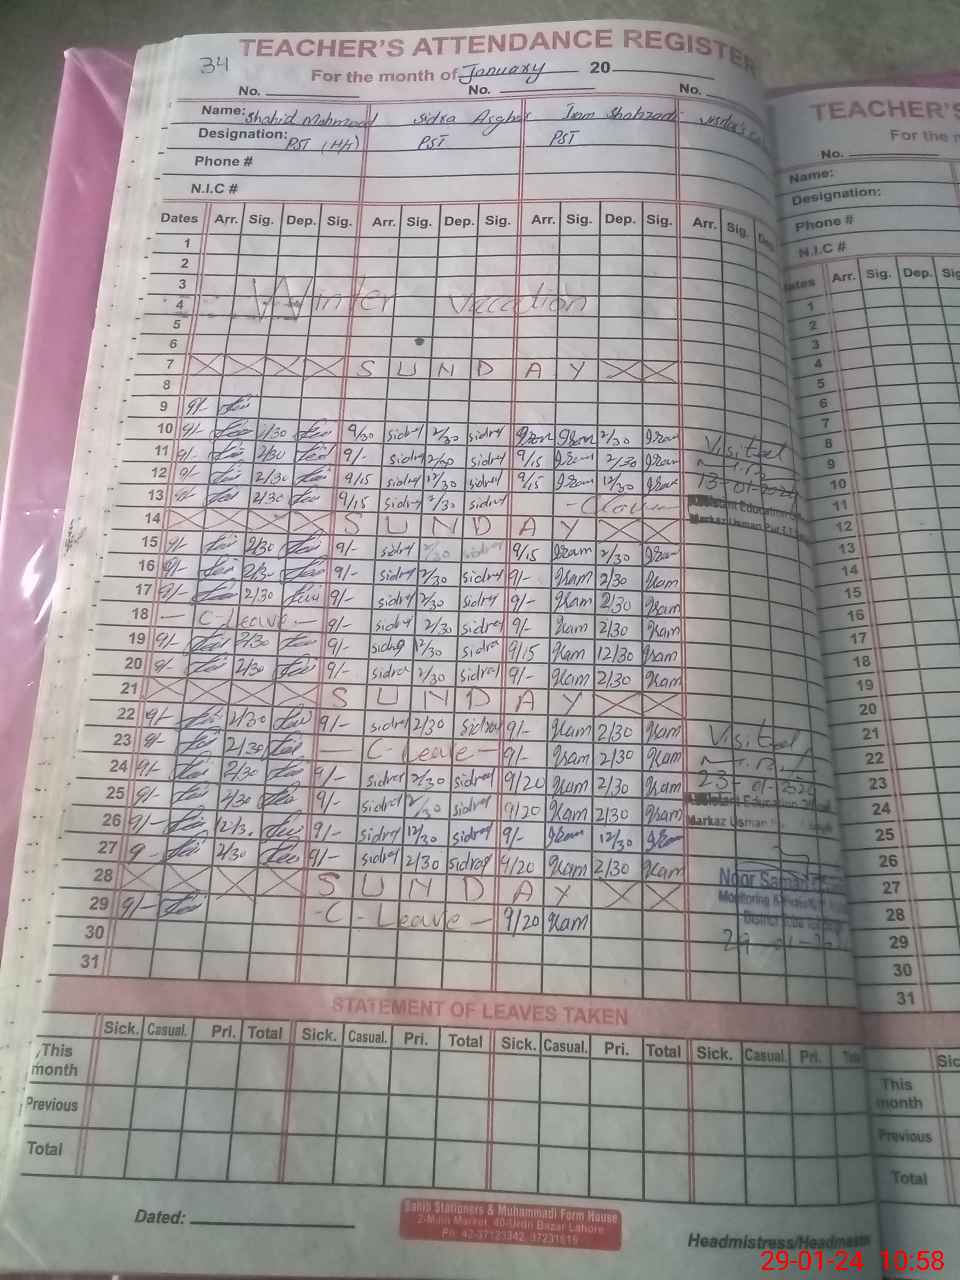 34
TEACHER'S ATTENDANCE REGISTER
For the month of January 20
No. No. No.
Name: Shahid Mahmood Sidra Asghar Iram Shahzadi
Designation: PST (H/T) PST PST
Phone #
N.I.C #
Dates Arr. Sig. Dep. Sig. Arr. Sig. Dep. Sig. Arr. Sig. Dep. Sig. Arr. Sig.
1
2
3
4 Winter vacation
5
6
7 S U N D A Y
8
9 9/-
10 9/- 2/30 9/30 sidra 2/30 sidra Iram Iram 2/30 Iram
11 9/- 2/30 9/- sidra 2/30 sidra 9/15 Iram 2/30 Iram Visited
12 9/- 2/30 9/15 sidra 12/30 sidra 9/15 Iram 12/30 Iram 13-01-2024
13 9/- 2/30 9/15 sidra 2/30 sidra Assistant Education
14 S U N D A Y Markaz Usman
15 9/- 2/30 9/- sidra 2/30 sidra 9/15 Iram 2/30 Iram
16 9/- 2/30 9/- sidra 2/30 sidra 9/- Iram 2/30 Iram
17 9/- 2/30 9/- sidra 2/30 sidra 9/- Iram 2/30 Iram
18 - C-Leave - 9/- sidra 2/30 sidra 9/- Iram 2/30 Iram
19 9/- 2/30 9/- sidra 12/30 sidra 9/15 Iram 12/30 Iram
20 9/- 2/30 9/- sidra 2/30 sidra 9/- Iram 2/30 Iram
21 S U N D A Y
22 9/- 2/30 9/- sidra 2/30 sidra 9/- Iram 2/30 Iram Visited
23 9/- 2/30 - C-Leave - 9/- Iram 2/30 Iram
24 9/- 2/30 9/- sidra 2/30 sidra 9/20 Iram 2/30 Iram 23-01-2024
25 9/- 2/30 9/- sidra 2/30 sidra 9/20 Iram 2/30 Iram Assistant Education
26 9/- 12/30 9/- sidra 12/30 sidra 9/- Iram 12/30 Iram Markaz Usman
27 9- 2/30 9/- sidra 2/30 sidra 9/20 Iram 2/30 Iram
28 S U N D A Y Noor Saman
29 9/- -C-Leave- 9/20 Iram Monitoring
30 District
31 29-01-
STATEMENT OF LEAVES TAKEN
Sick. Casual. Pri. Total Sick. Casual. Pri. Total Sick. Casual. Pri. Total Sick. Casual. Pri. Total
This month
Previous
Total
Dated:
Sahib Stationers & Muhammadi Form House
2-Main Market, 40-Urdu Bazar Lahore
Ph: 42-37123342, 37231819
Headmistress/Headmaster
TEACHER'S
For the
No.
Name:
Designation:
Phone #
N.I.C #
Dates Arr. Sig. Dep. Sig
1
2
3
4
5
6
7
8
9
10
11
12
13
14
15
16
17
18
19
20
21
22
23
24
25
26
27
28
29
30
31
Sic
This month
Previous
Total
29-01-24 10:58